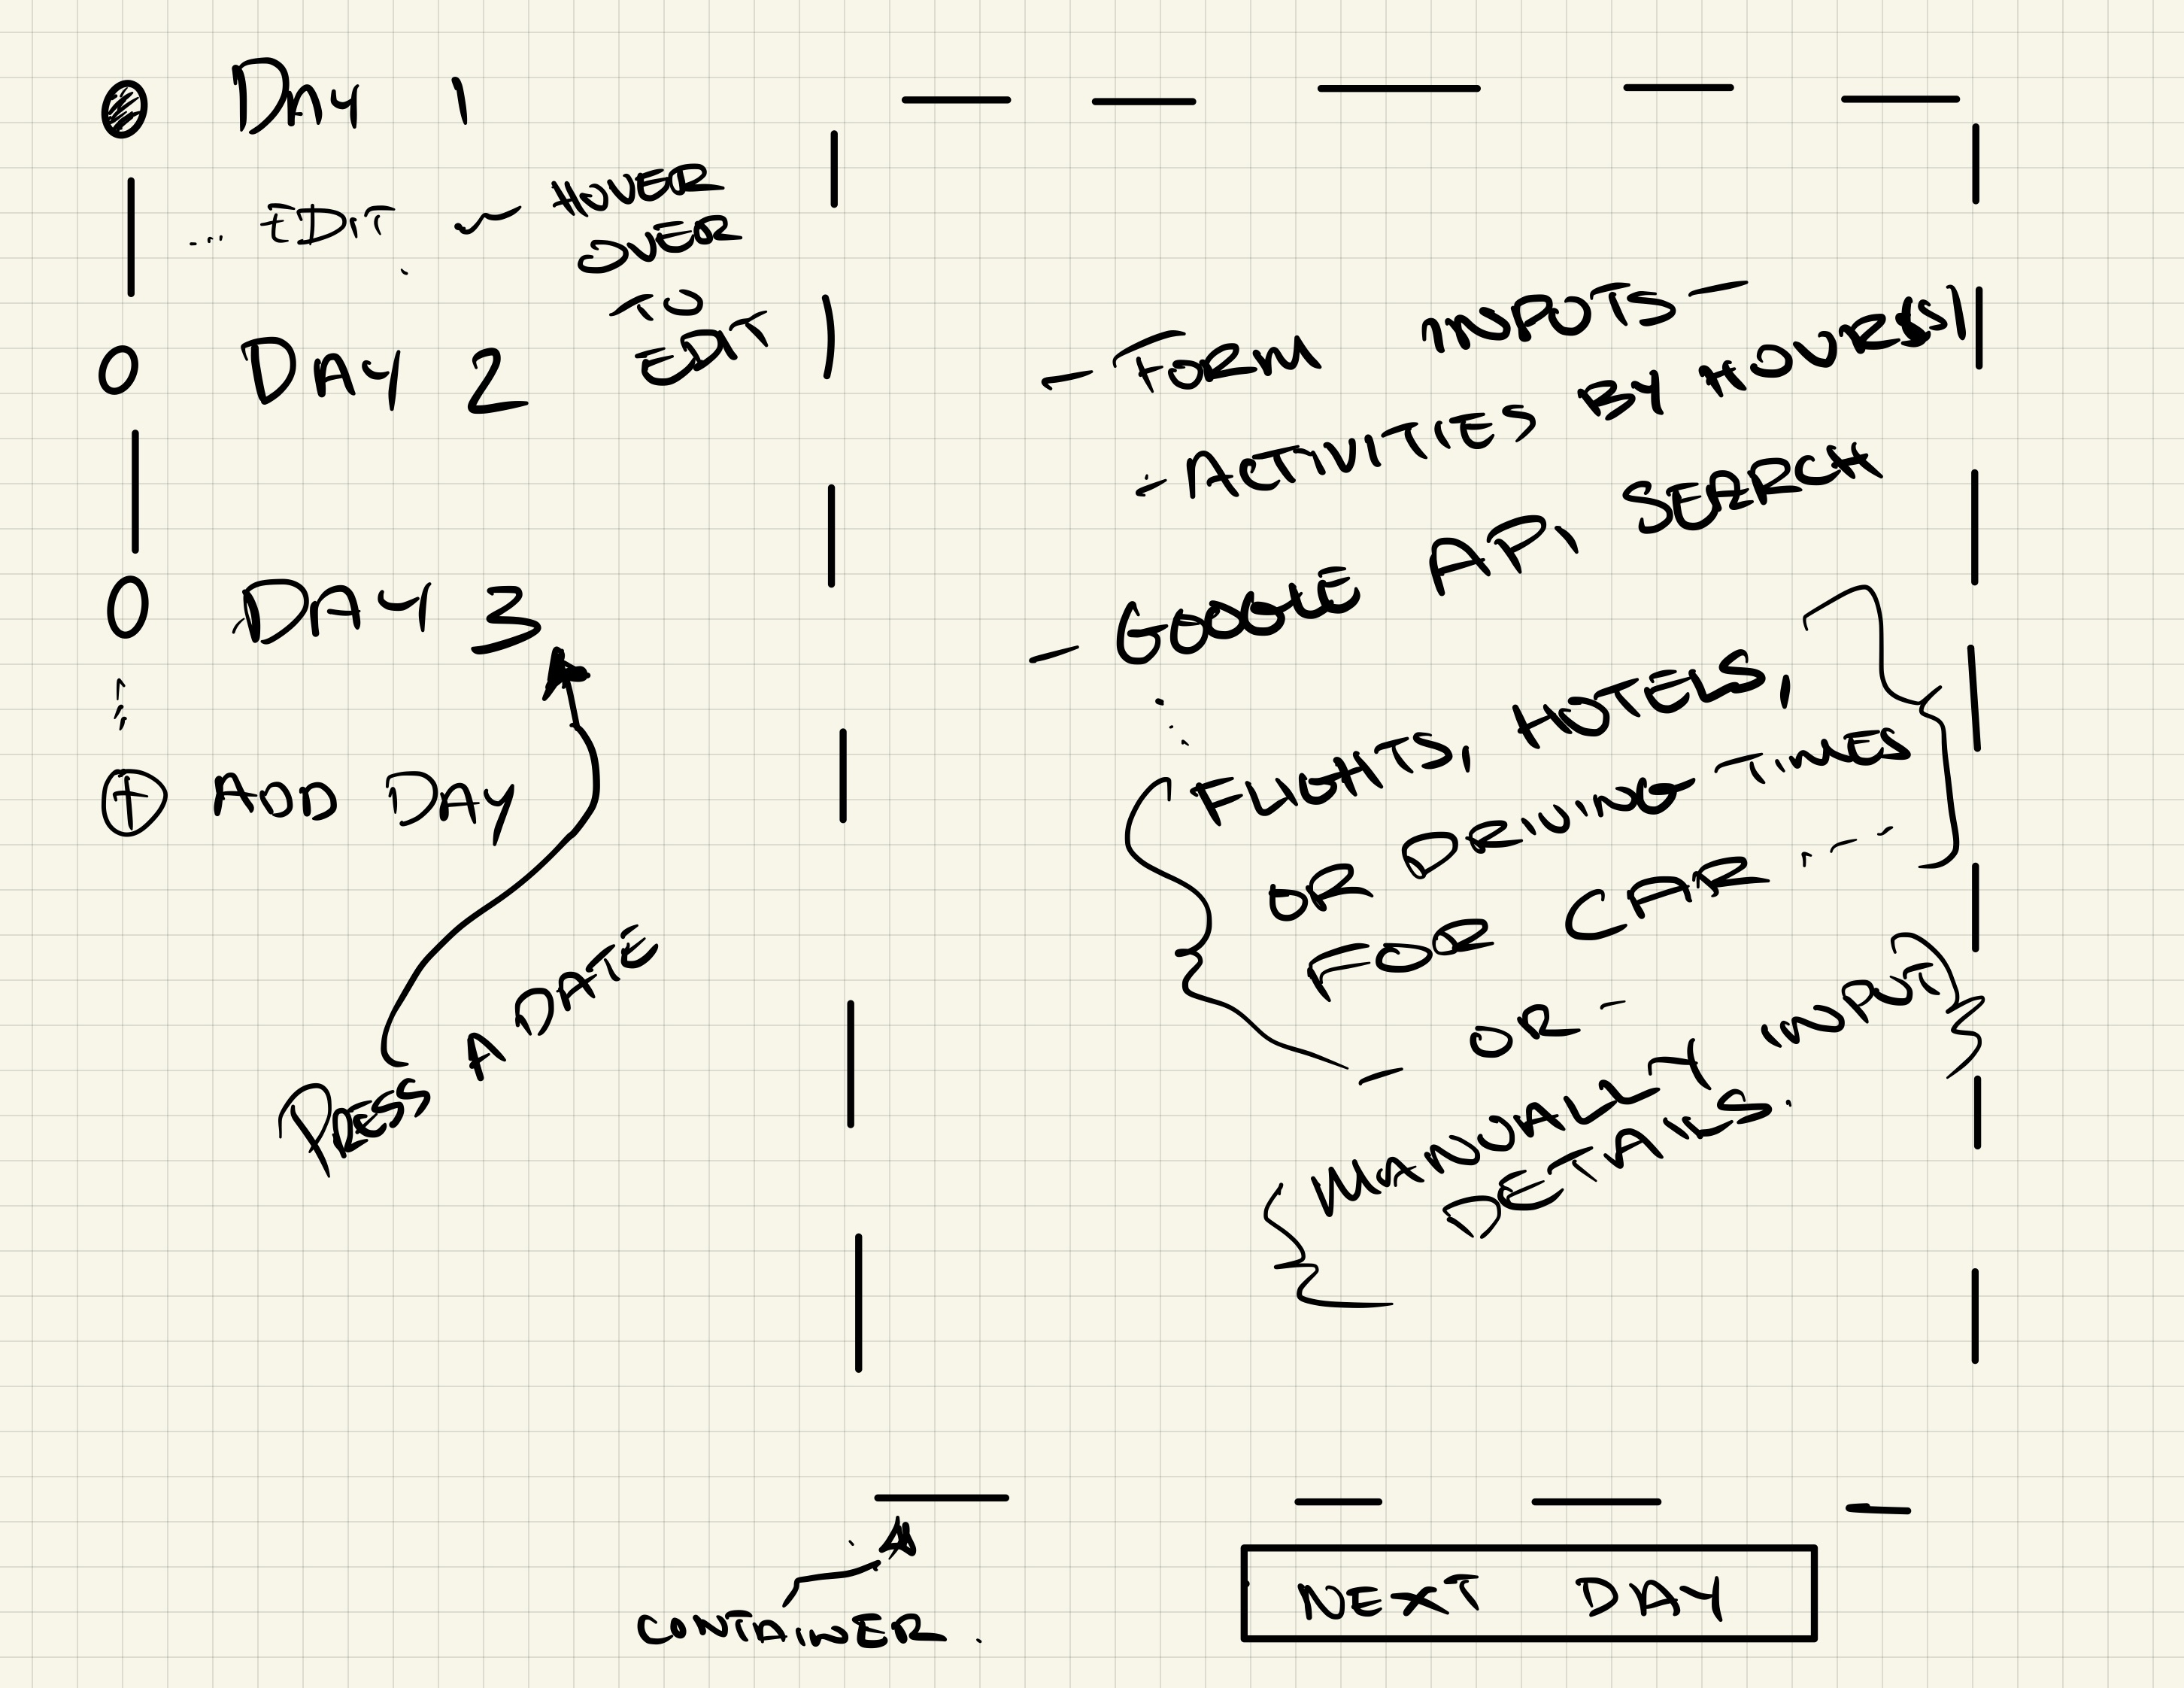 DAY 1
... EDIT ~ HOVER
OVER
TO
EDIT
DAY 2
DAY 3
+ ADD DAY
PRESS A DATE
- FORM INPUTS -
- ACTIVITIES BY HOUR(S)
- GOOGLE API SEARCH
FLIGHTS, HOTELS,
OR DRIVING TIMES
FOR CAR ...
- OR -
MANUALLY INPUT
DETAILS.
CONTAINER.
NEXT DAY